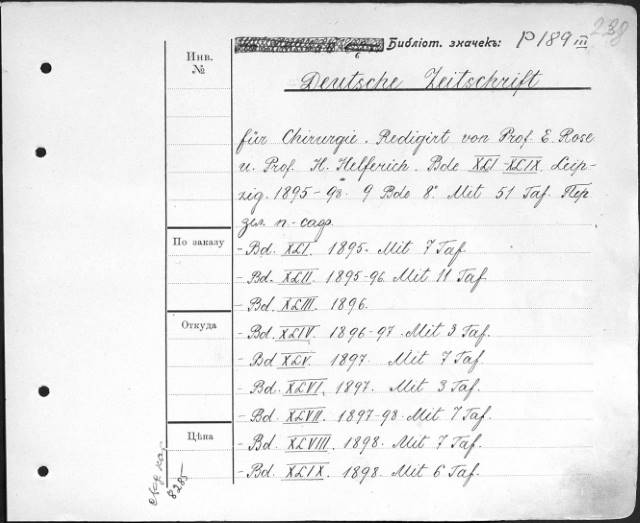 238
Библіот. значекъ: P 189 III
6
Инв.
№
Deutsche Zeitschrift
für Chirurgie. Redigirt von Prof. E. Rose
u. Prof. H. Helferich. Bde XLI-XLIX. Leip-
zig. 1895-98. 9 Bde 8°. Mit 51 Taf. Пер.
зел. п.-саф.
По заказу
- Bd. XLI. 1895. Mit 7 Taf.
- Bd. XLII. 1895-96. Mit 11 Taf.
- Bd. XLIII. 1896.
Откуда
- Bd. XLIV. 1896-97. Mit 3 Taf.
- Bd XLV. 1897. Mit 7 Taf
- Bd. XLVI. 1897. Mit 3 Taf.
- Bd. XLVII. 1897-98. Mit 7 Taf.
Цѣна
- Bd. XLVIII. 1898. Mit 7 Taf.
- Bd. XLIX. 1898. Mit 6 Taf.
8285